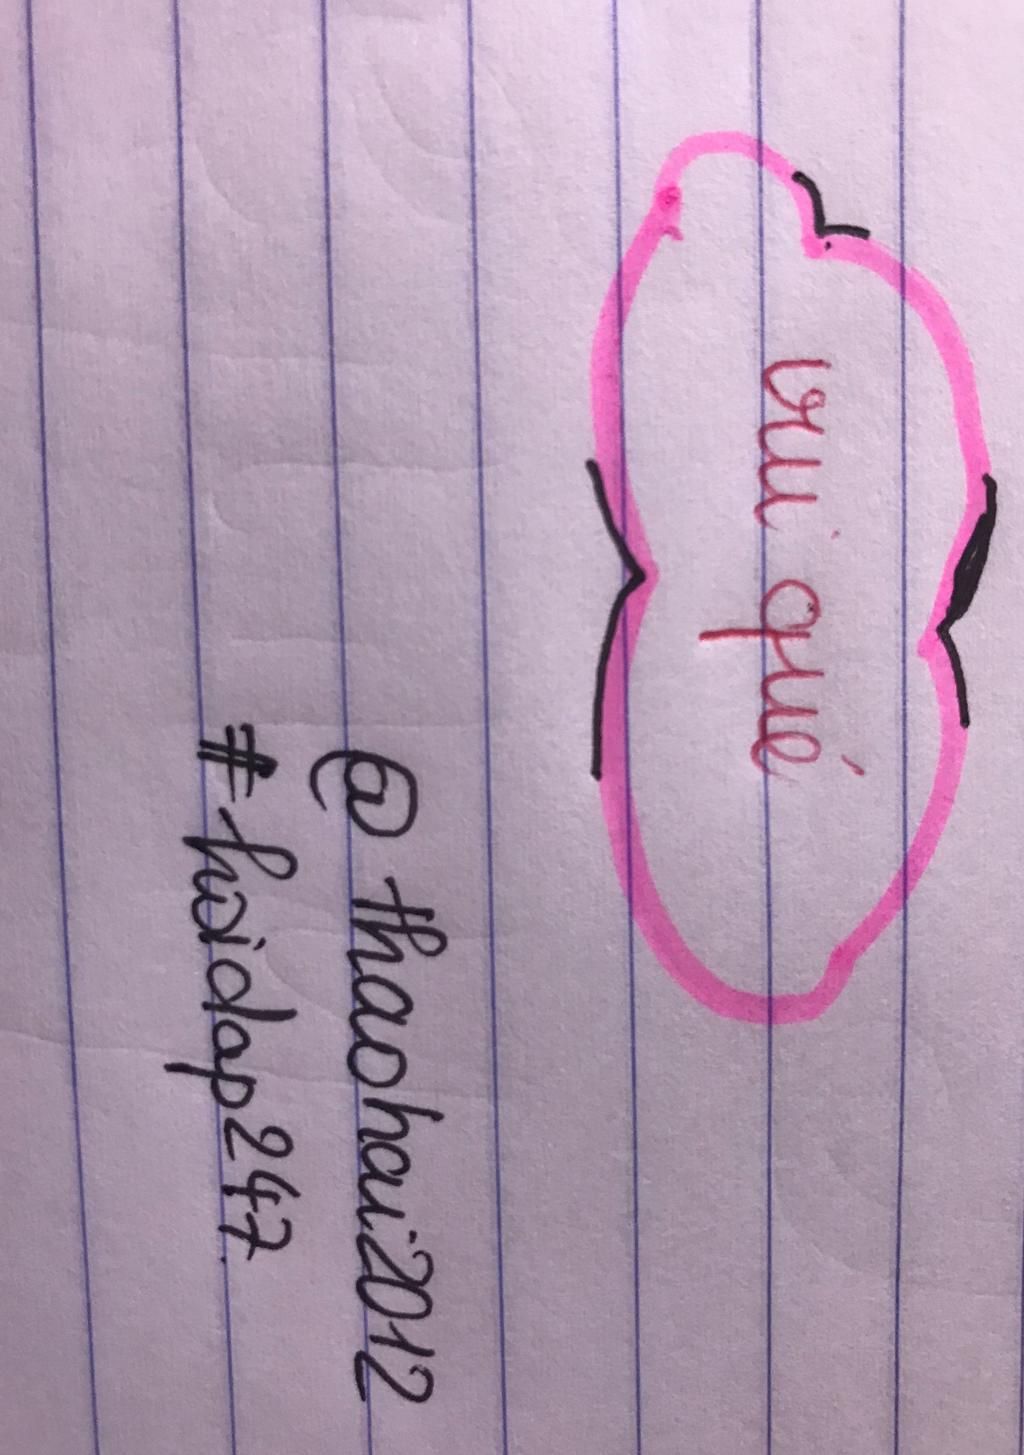 vui qué
@thaohai2012
#hoidap247